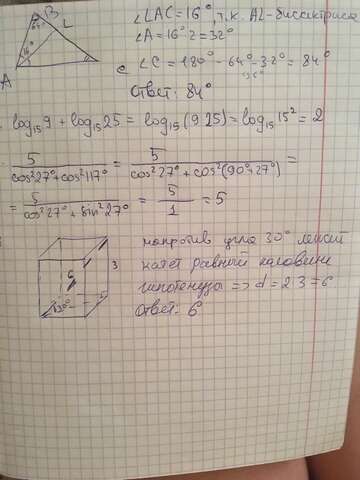 B
64°
L
16°
A
C
∠LAC = 16°, т.к. AL-биссектриса
∠A = 16°·2 = 32°
∠C = 180° - 64° - 32° = 84°
Ответ: 84°
log₁₅9 + log₁₅25 = log₁₅(9·25) = log₁₅15² = 2
5/(cos²27° + cos²117°) = 5/(cos²27° + cos²(90°+27°)) =
= 5/(cos²27° + sin²27°) = 5/1 = 5
6
3
30°
напротив угла 30° лежит
катет равный половине
гипотенузы => d = 2·3 = 6
Ответ: 6